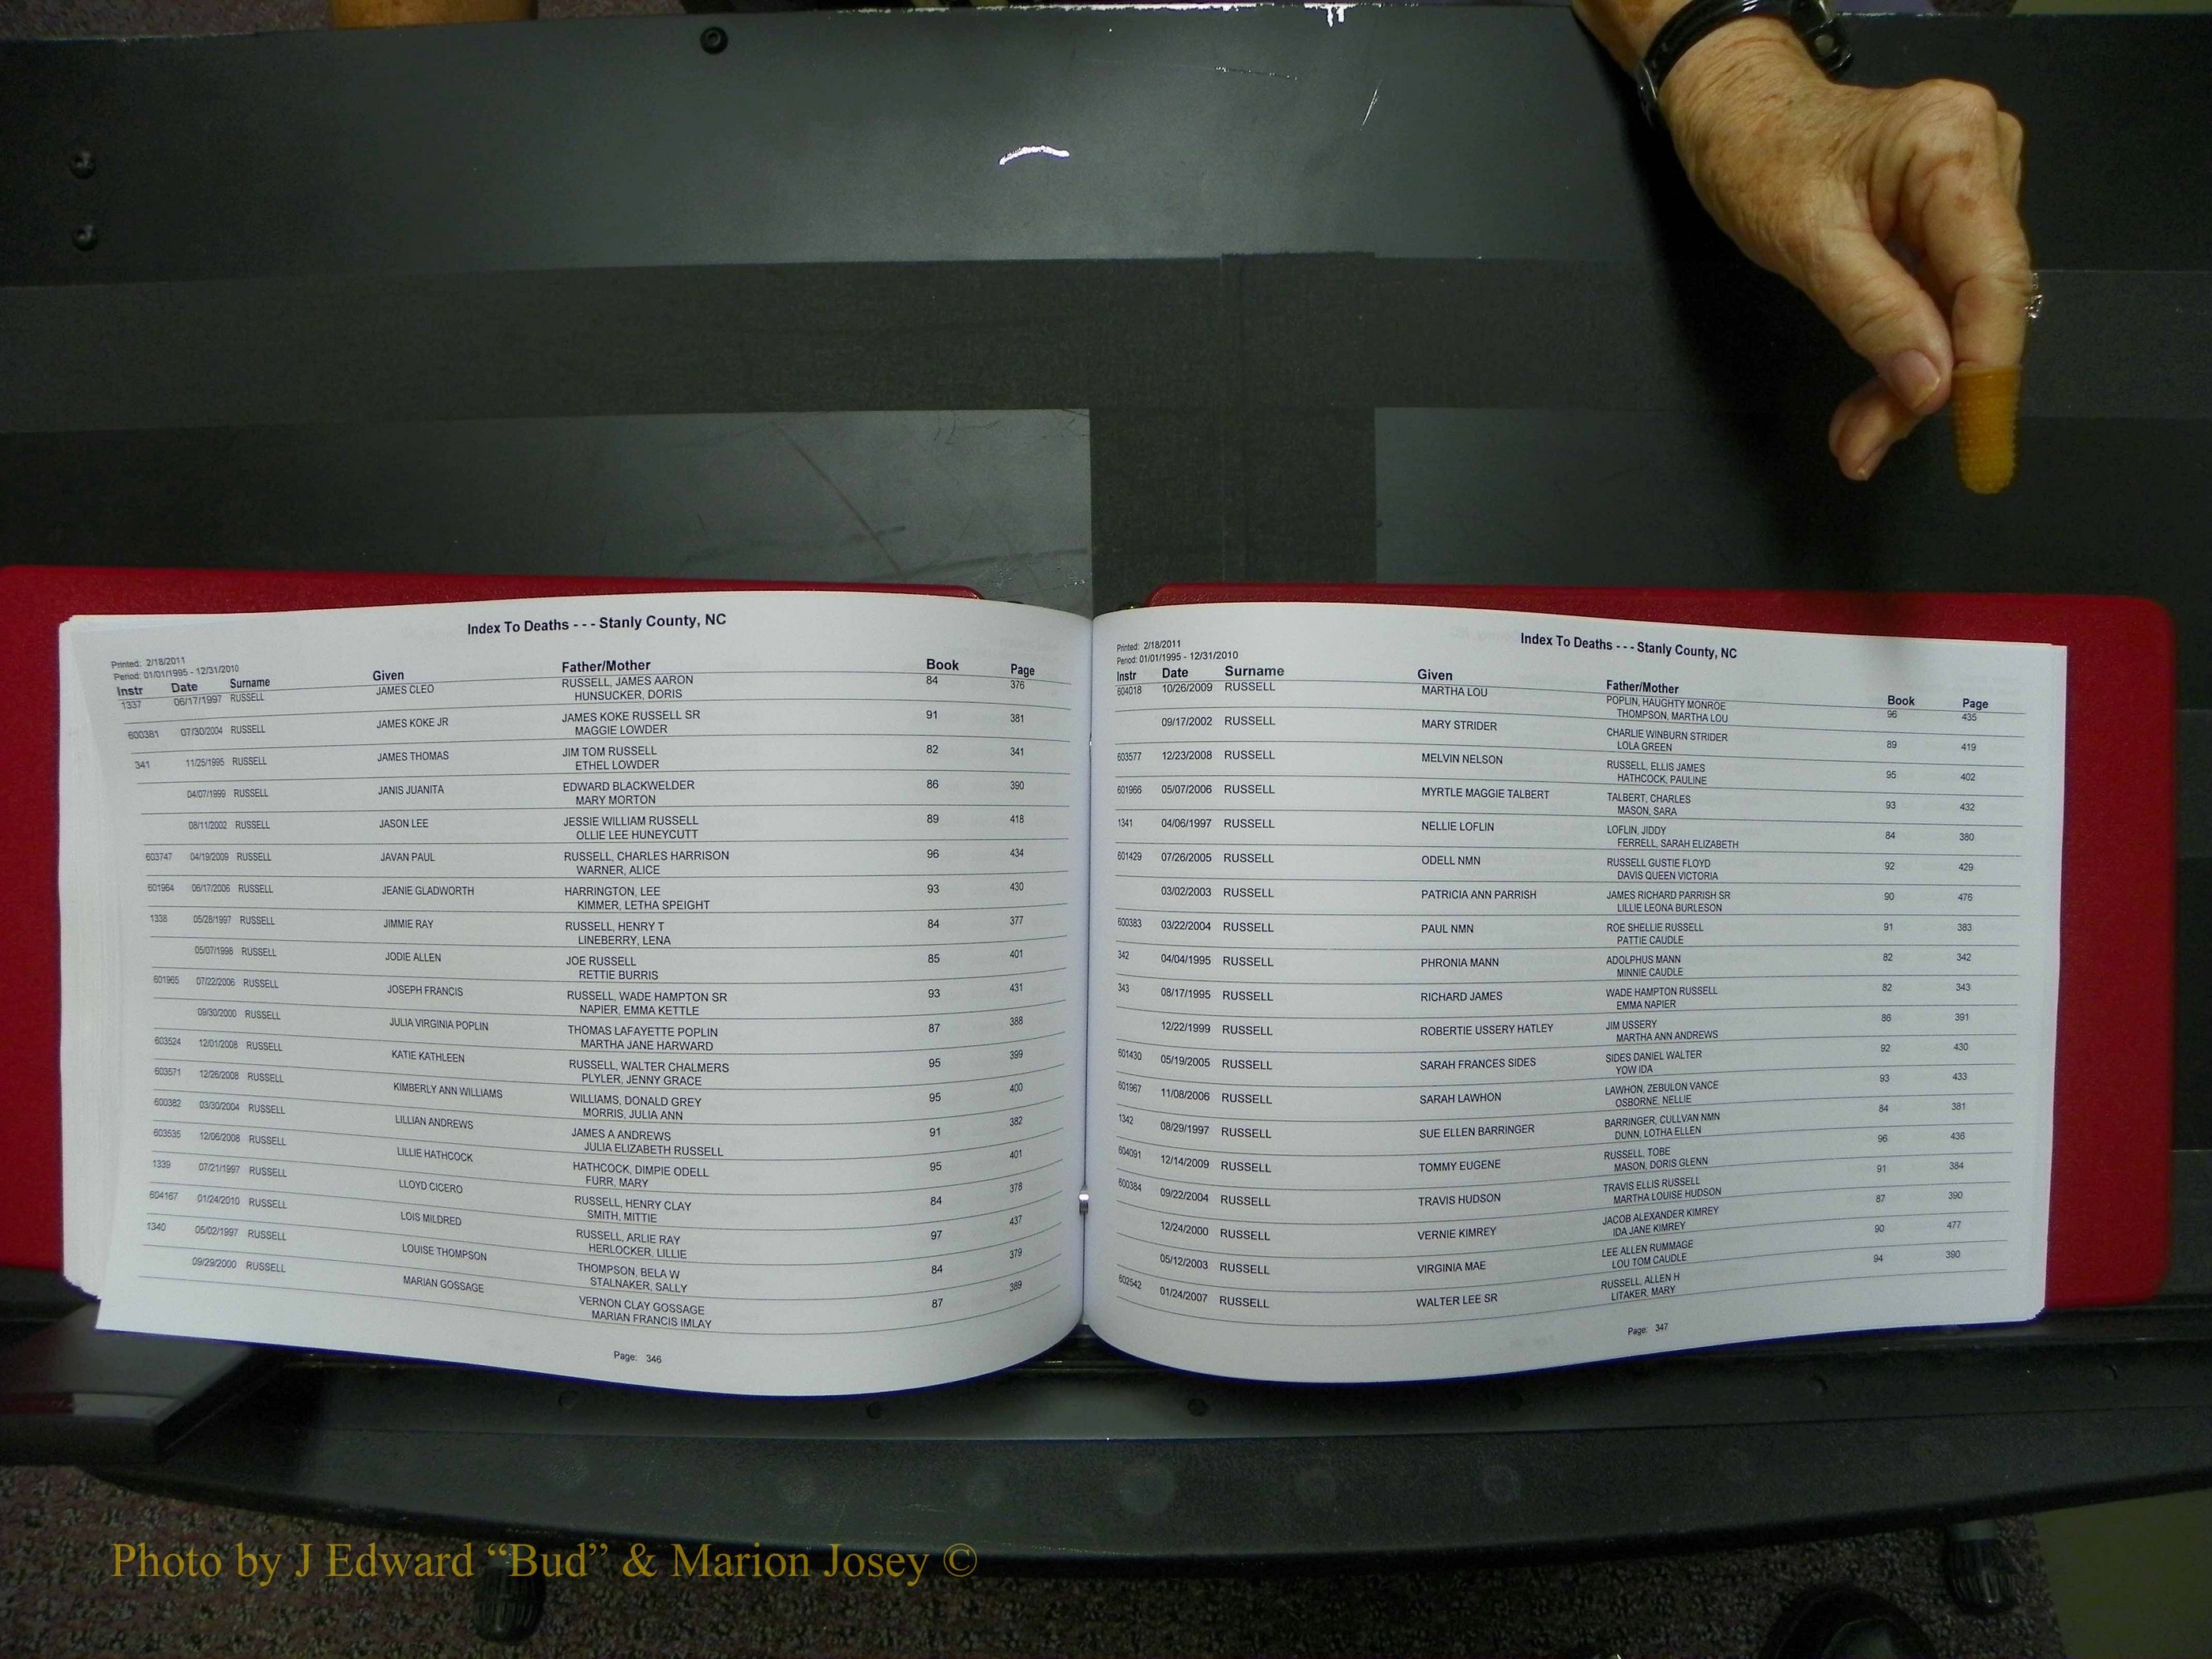 Index To Deaths - - - Stanly County, NC
Printed: 2/18/2011
Period: 01/01/1995 - 12/31/2010
Instr Date Surname Given Father/Mother Book Page
1337 06/17/1997 RUSSELL JAMES CLEO RUSSELL, JAMES AARON 84 376
HUNSUCKER, DORIS
600381 07/30/2004 RUSSELL JAMES KOKE JR JAMES KOKE RUSSELL SR 91 381
MAGGIE LOWDER
341 11/25/1995 RUSSELL JAMES THOMAS JIM TOM RUSSELL 82 341
ETHEL LOWDER
04/07/1999 RUSSELL JANIS JUANITA EDWARD BLACKWELDER 86 390
MARY MORTON
08/11/2002 RUSSELL JASON LEE JESSIE WILLIAM RUSSELL 89 418
OLLIE LEE HUNEYCUTT
603747 04/19/2009 RUSSELL JAVAN PAUL RUSSELL, CHARLES HARRISON 96 434
WARNER, ALICE
601964 06/17/2006 RUSSELL JEANIE GLADWORTH HARRINGTON, LEE 93 430
KIMMER, LETHA SPEIGHT
1338 05/28/1997 RUSSELL JIMMIE RAY RUSSELL, HENRY T 84 377
LINEBERRY, LENA
05/07/1998 RUSSELL JODIE ALLEN JOE RUSSELL 85 401
RETTIE BURRIS
601965 07/22/2006 RUSSELL JOSEPH FRANCIS RUSSELL, WADE HAMPTON SR 93 431
NAPIER, EMMA KETTLE
09/30/2000 RUSSELL JULIA VIRGINIA POPLIN THOMAS LAFAYETTE POPLIN 87 388
MARTHA JANE HARWARD
603524 12/01/2008 RUSSELL KATIE KATHLEEN RUSSELL, WALTER CHALMERS 95 399
PLYLER, JENNY GRACE
603571 12/26/2008 RUSSELL KIMBERLY ANN WILLIAMS WILLIAMS, DONALD GREY 95 400
MORRIS, JULIA ANN
600382 03/30/2004 RUSSELL LILLIAN ANDREWS JAMES A ANDREWS 91 382
JULIA ELIZABETH RUSSELL
603535 12/06/2008 RUSSELL LILLIE HATHCOCK HATHCOCK, DIMPIE ODELL 95 401
FURR, MARY
1339 07/21/1997 RUSSELL LLOYD CICERO RUSSELL, HENRY CLAY 84 378
SMITH, MITTIE
604167 01/24/2010 RUSSELL LOIS MILDRED RUSSELL, ARLIE RAY 97 437
HERLOCKER, LILLIE
1340 05/02/1997 RUSSELL LOUISE THOMPSON THOMPSON, BELA W 84 379
STALNAKER, SALLY
09/29/2000 RUSSELL MARIAN GOSSAGE VERNON CLAY GOSSAGE 87 389
MARIAN FRANCIS IMLAY
Page: 346
Index To Deaths - - - Stanly County, NC
Printed: 2/18/2011
Period: 01/01/1995 - 12/31/2010
Instr Date Surname Given Father/Mother Book Page
604018 10/26/2009 RUSSELL MARTHA LOU POPLIN, HAUGHTY MONROE 96 435
THOMPSON, MARTHA LOU
09/17/2002 RUSSELL MARY STRIDER CHARLIE WINBURN STRIDER 89 419
LOLA GREEN
603577 12/23/2008 RUSSELL MELVIN NELSON RUSSELL, ELLIS JAMES 95 402
HATHCOCK, PAULINE
601966 05/07/2006 RUSSELL MYRTLE MAGGIE TALBERT TALBERT, CHARLES 93 432
MASON, SARA
1341 04/06/1997 RUSSELL NELLIE LOFLIN LOFLIN, JIDDY 84 380
FERRELL, SARAH ELIZABETH
601429 07/26/2005 RUSSELL ODELL NMN RUSSELL GUSTIE FLOYD 92 429
DAVIS QUEEN VICTORIA
03/02/2003 RUSSELL PATRICIA ANN PARRISH JAMES RICHARD PARRISH SR 90 476
LILLIE LEONA BURLESON
600383 03/22/2004 RUSSELL PAUL NMN ROE SHELLIE RUSSELL 91 383
PATTIE CAUDLE
342 04/04/1995 RUSSELL PHRONIA MANN ADOLPHUS MANN 82 342
MINNIE CAUDLE
343 08/17/1995 RUSSELL RICHARD JAMES WADE HAMPTON RUSSELL 82 343
EMMA NAPIER
12/22/1999 RUSSELL ROBERTIE USSERY HATLEY JIM USSERY 86 391
MARTHA ANN ANDREWS
601430 05/19/2005 RUSSELL SARAH FRANCES SIDES SIDES DANIEL WALTER 92 430
YOW IDA
601967 11/08/2006 RUSSELL SARAH LAWHON LAWHON, ZEBULON VANCE 93 433
OSBORNE, NELLIE
1342 08/29/1997 RUSSELL SUE ELLEN BARRINGER BARRINGER, CULLVAN NMN 84 381
DUNN, LOTHA ELLEN
604091 12/14/2009 RUSSELL TOMMY EUGENE RUSSELL, TOBE 96 436
MASON, DORIS GLENN
600384 09/22/2004 RUSSELL TRAVIS HUDSON TRAVIS ELLIS RUSSELL 91 384
MARTHA LOUISE HUDSON
12/24/2000 RUSSELL VERNIE KIMREY JACOB ALEXANDER KIMREY 87 390
IDA JANE KIMREY
05/12/2003 RUSSELL VIRGINIA MAE LEE ALLEN RUMMAGE 90 477
LOU TOM CAUDLE
602542 01/24/2007 RUSSELL WALTER LEE SR RUSSELL, ALLEN H 94 390
LITAKER, MARY
Page: 347
Photo by J Edward “Bud” & Marion Josey ©